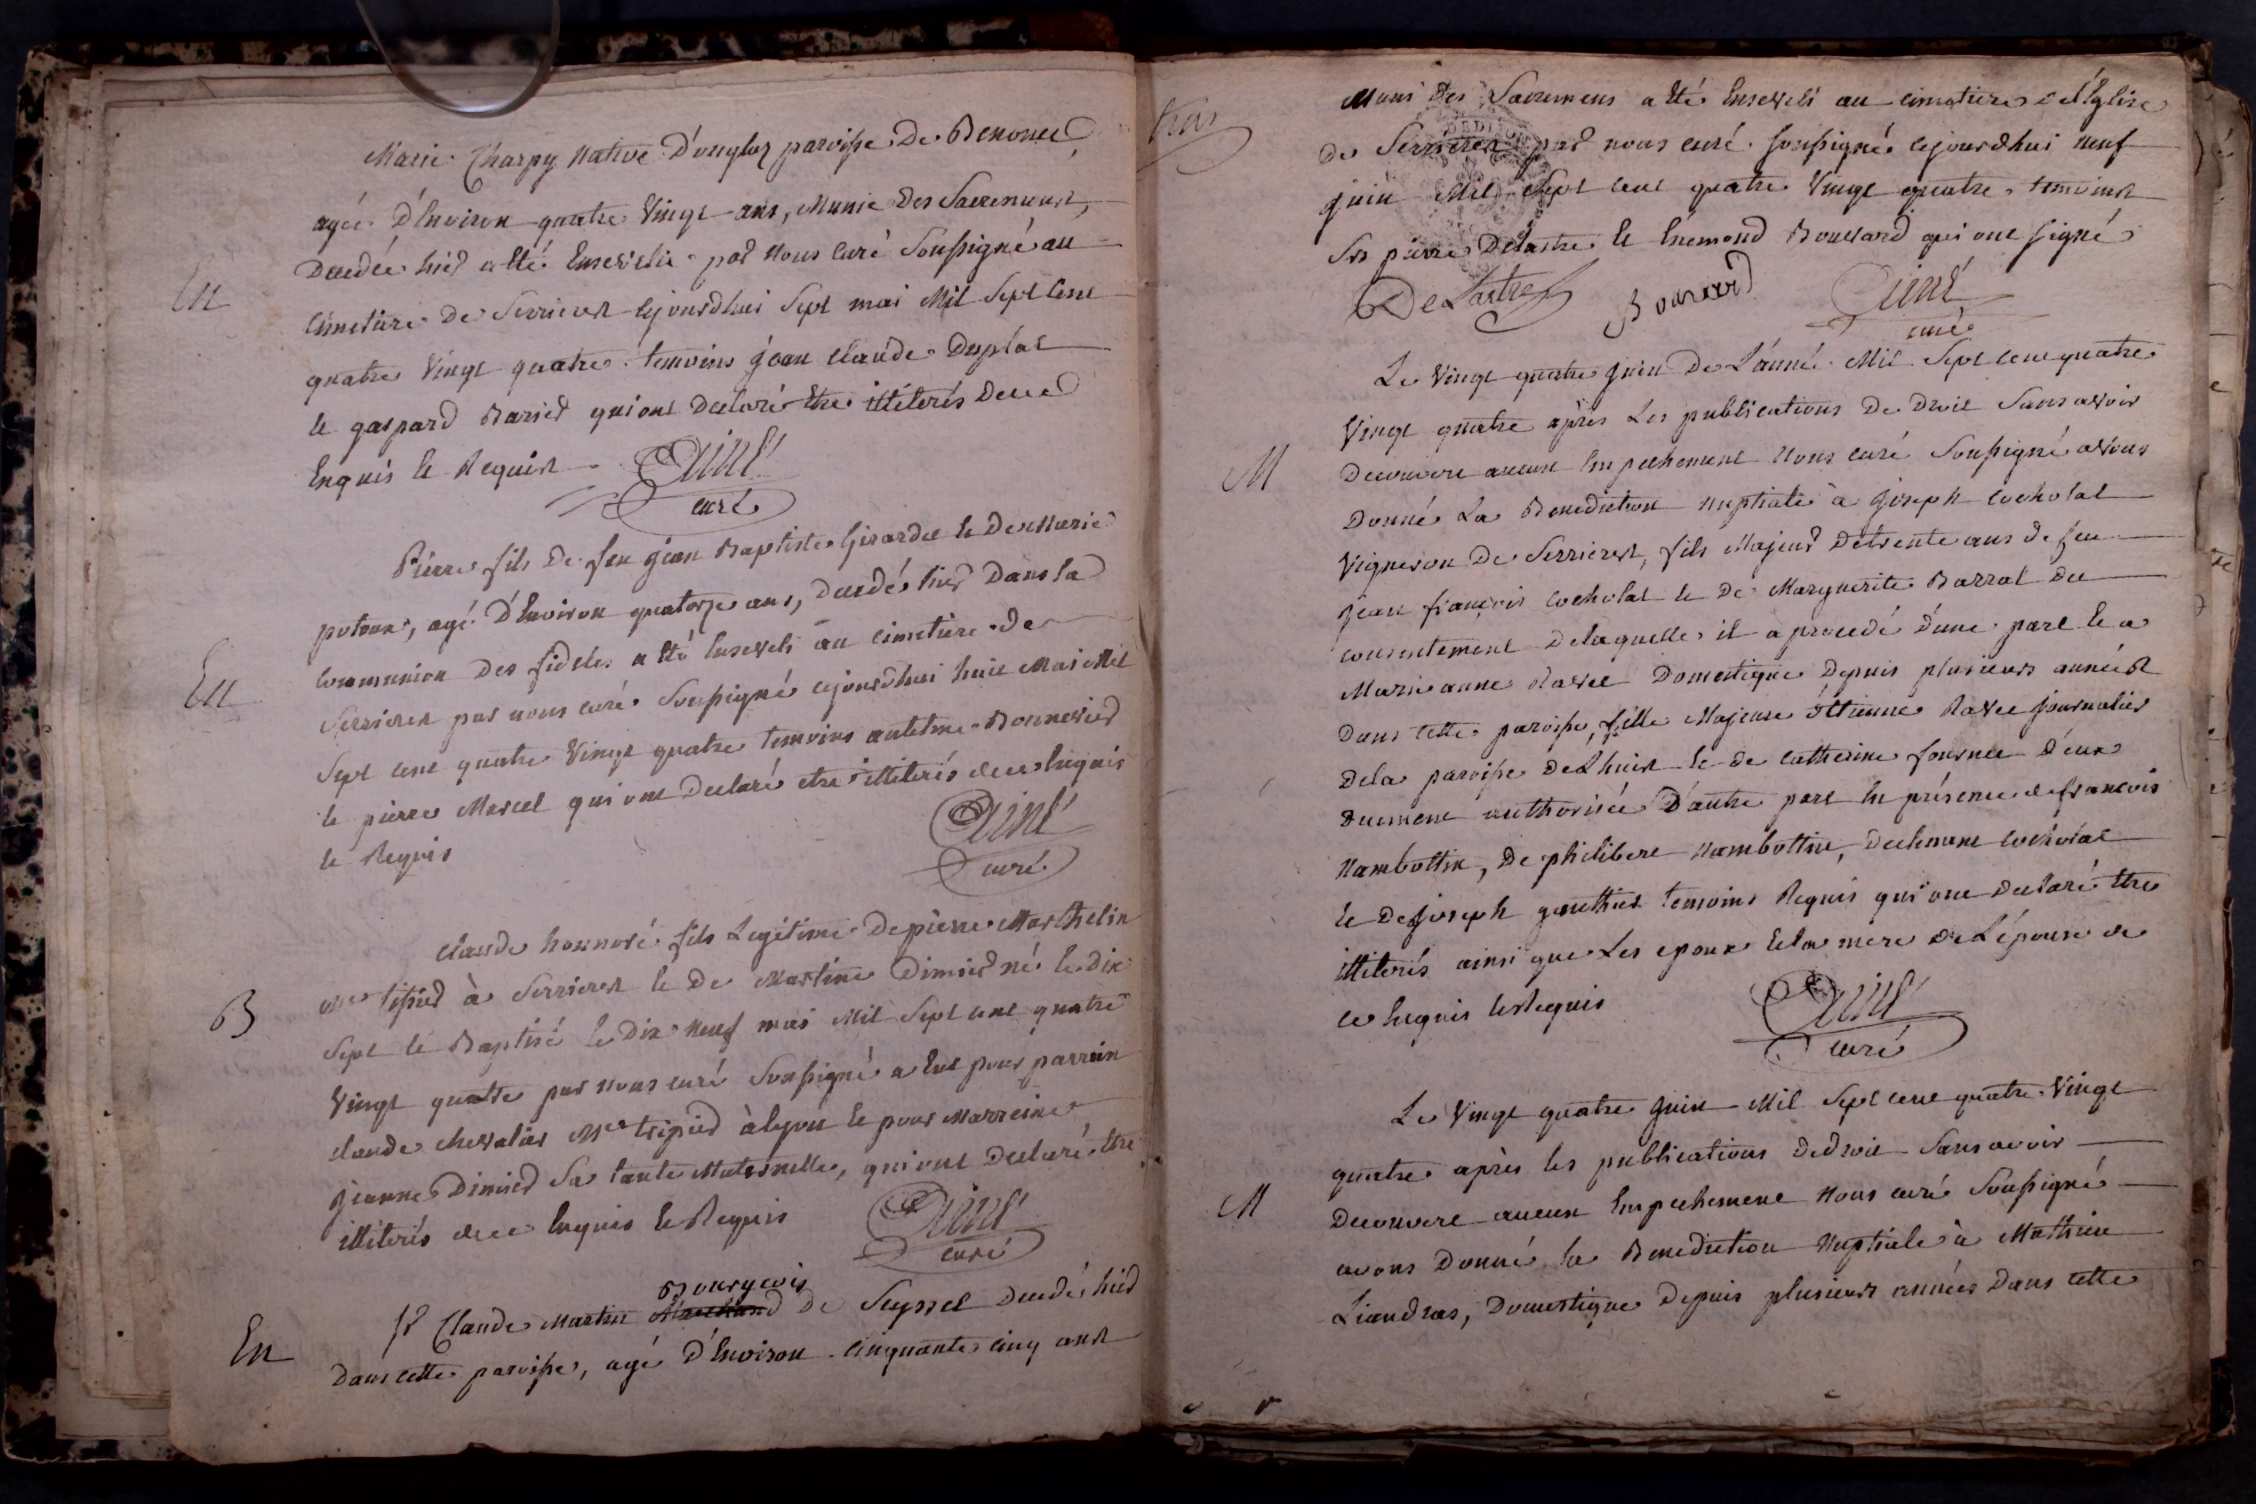 Marie Charpy Native D'onglas paroisse De Benonce
En
agée D'Environ quatre Vingt ans, Munie Des Sacremens,
Decedée hier a Eté Ensevelie par Nous Curé Soussigné au
Cimetiere De Serrieres cejourdhui Sept mai Mil Sept Cent
quatre Vingt quatre temoins jean claude Duplat
Et gaspard Barier qui ont Declaré Etre illiterés De ce
Enquis Et Requis
curé
En
Pierre fils De feu jean Baptiste Girardet Et De Marie
, agé D'Environ quatorze ans, Decedé hier Dans la
Communion Des fideles a Eté Enseveli au Cimetiere De
Serrieres par nous curé Soussigné cejourdhui huit Mai Mil
Sept cent quatre Vingt quatre temoins antelme Bonnevier
Et pierre Marcel qui ont Declaré etre illiterés de ce Enquis
Et Requis
curé
B
Claude honnoré fils Legitime De pierre Marthelin
Me à Serrieres Et De Martine Dimier né Le Dix
Sept Et Baptisé Le Dix Neuf mai Mil Sept cent quatre
Vingt quatre par Nous curé Soussigné a Eut pour parrain
claude chevalier Me à lyon Et pour Marreine
jeanne Dimier Sa tante Maternelle, qui ont Declaré Etre
illiterés de ce Enquis Et Requis
curé
En
Bourgeois
Sr Claude Martin de Seyssel Decedé hier
Dans cette paroisse, agé D'Environ Cinquante cinq ans
Muni Des Sacremens a Eté Enseveli au cimetiere de l'Eglise
De Serrieres par nous curé soussigné cejourdhui neuf
juin Mil Sept cent quatre Vingt quatre temoins
Srs pierre Delastre Et Enemond Bouvard qui ont signé
DeLastre Bouvard
curé
M
Le Vingt quatre juin De L'année Mil Sept cent quatre
Vingt quatre après Les publications De Droit Sans avoir
Decouvert aucun Empechement Nous curé Soussigné avons
Donné La Benediction Nuptiale à joseph cocholat
Vigneron De Serrieres, fils Majeur De trente ans de feu
jean françois cocholat Et De Marguerite Barral Du
consentement De laquelle il a procedé D'une part Et a
Marie anne Ravet Domestique Depuis plusieurs années
Dans cette paroisse, fille Majeure d'Etienne Ravet journalier
De la paroisse De Lhuis Et de catherine fournet D'eux
Duement authorisée D'autre part En présence de françois
Nambottin, De philibert Nambottin, De clement cocholat
Et De joseph gauthier temoins Requis qui ont Declaré Etre
illiterés ainsi que Les epoux Et la mere De L'épouse de
ce Enquis Et Requis
curé
M
Le Vingt quatre juin Mil Sept cent quatre Vingt
quatre après les publications De droit Sans avoir
Decouvert aucun Empechement Nous curé Soussigné
avons Donné la Benediction Nuptiale à Mathieu
Liandras, Domestique Depuis plusieurs années Dans cette